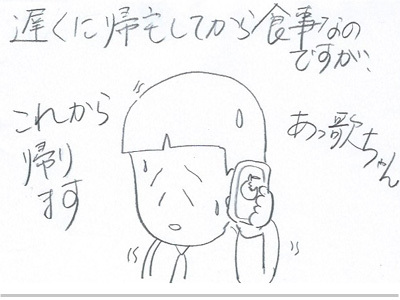 遅くに帰宅してから食事なの
ですが、
あっ歌ちゃん
これから
帰り
ます